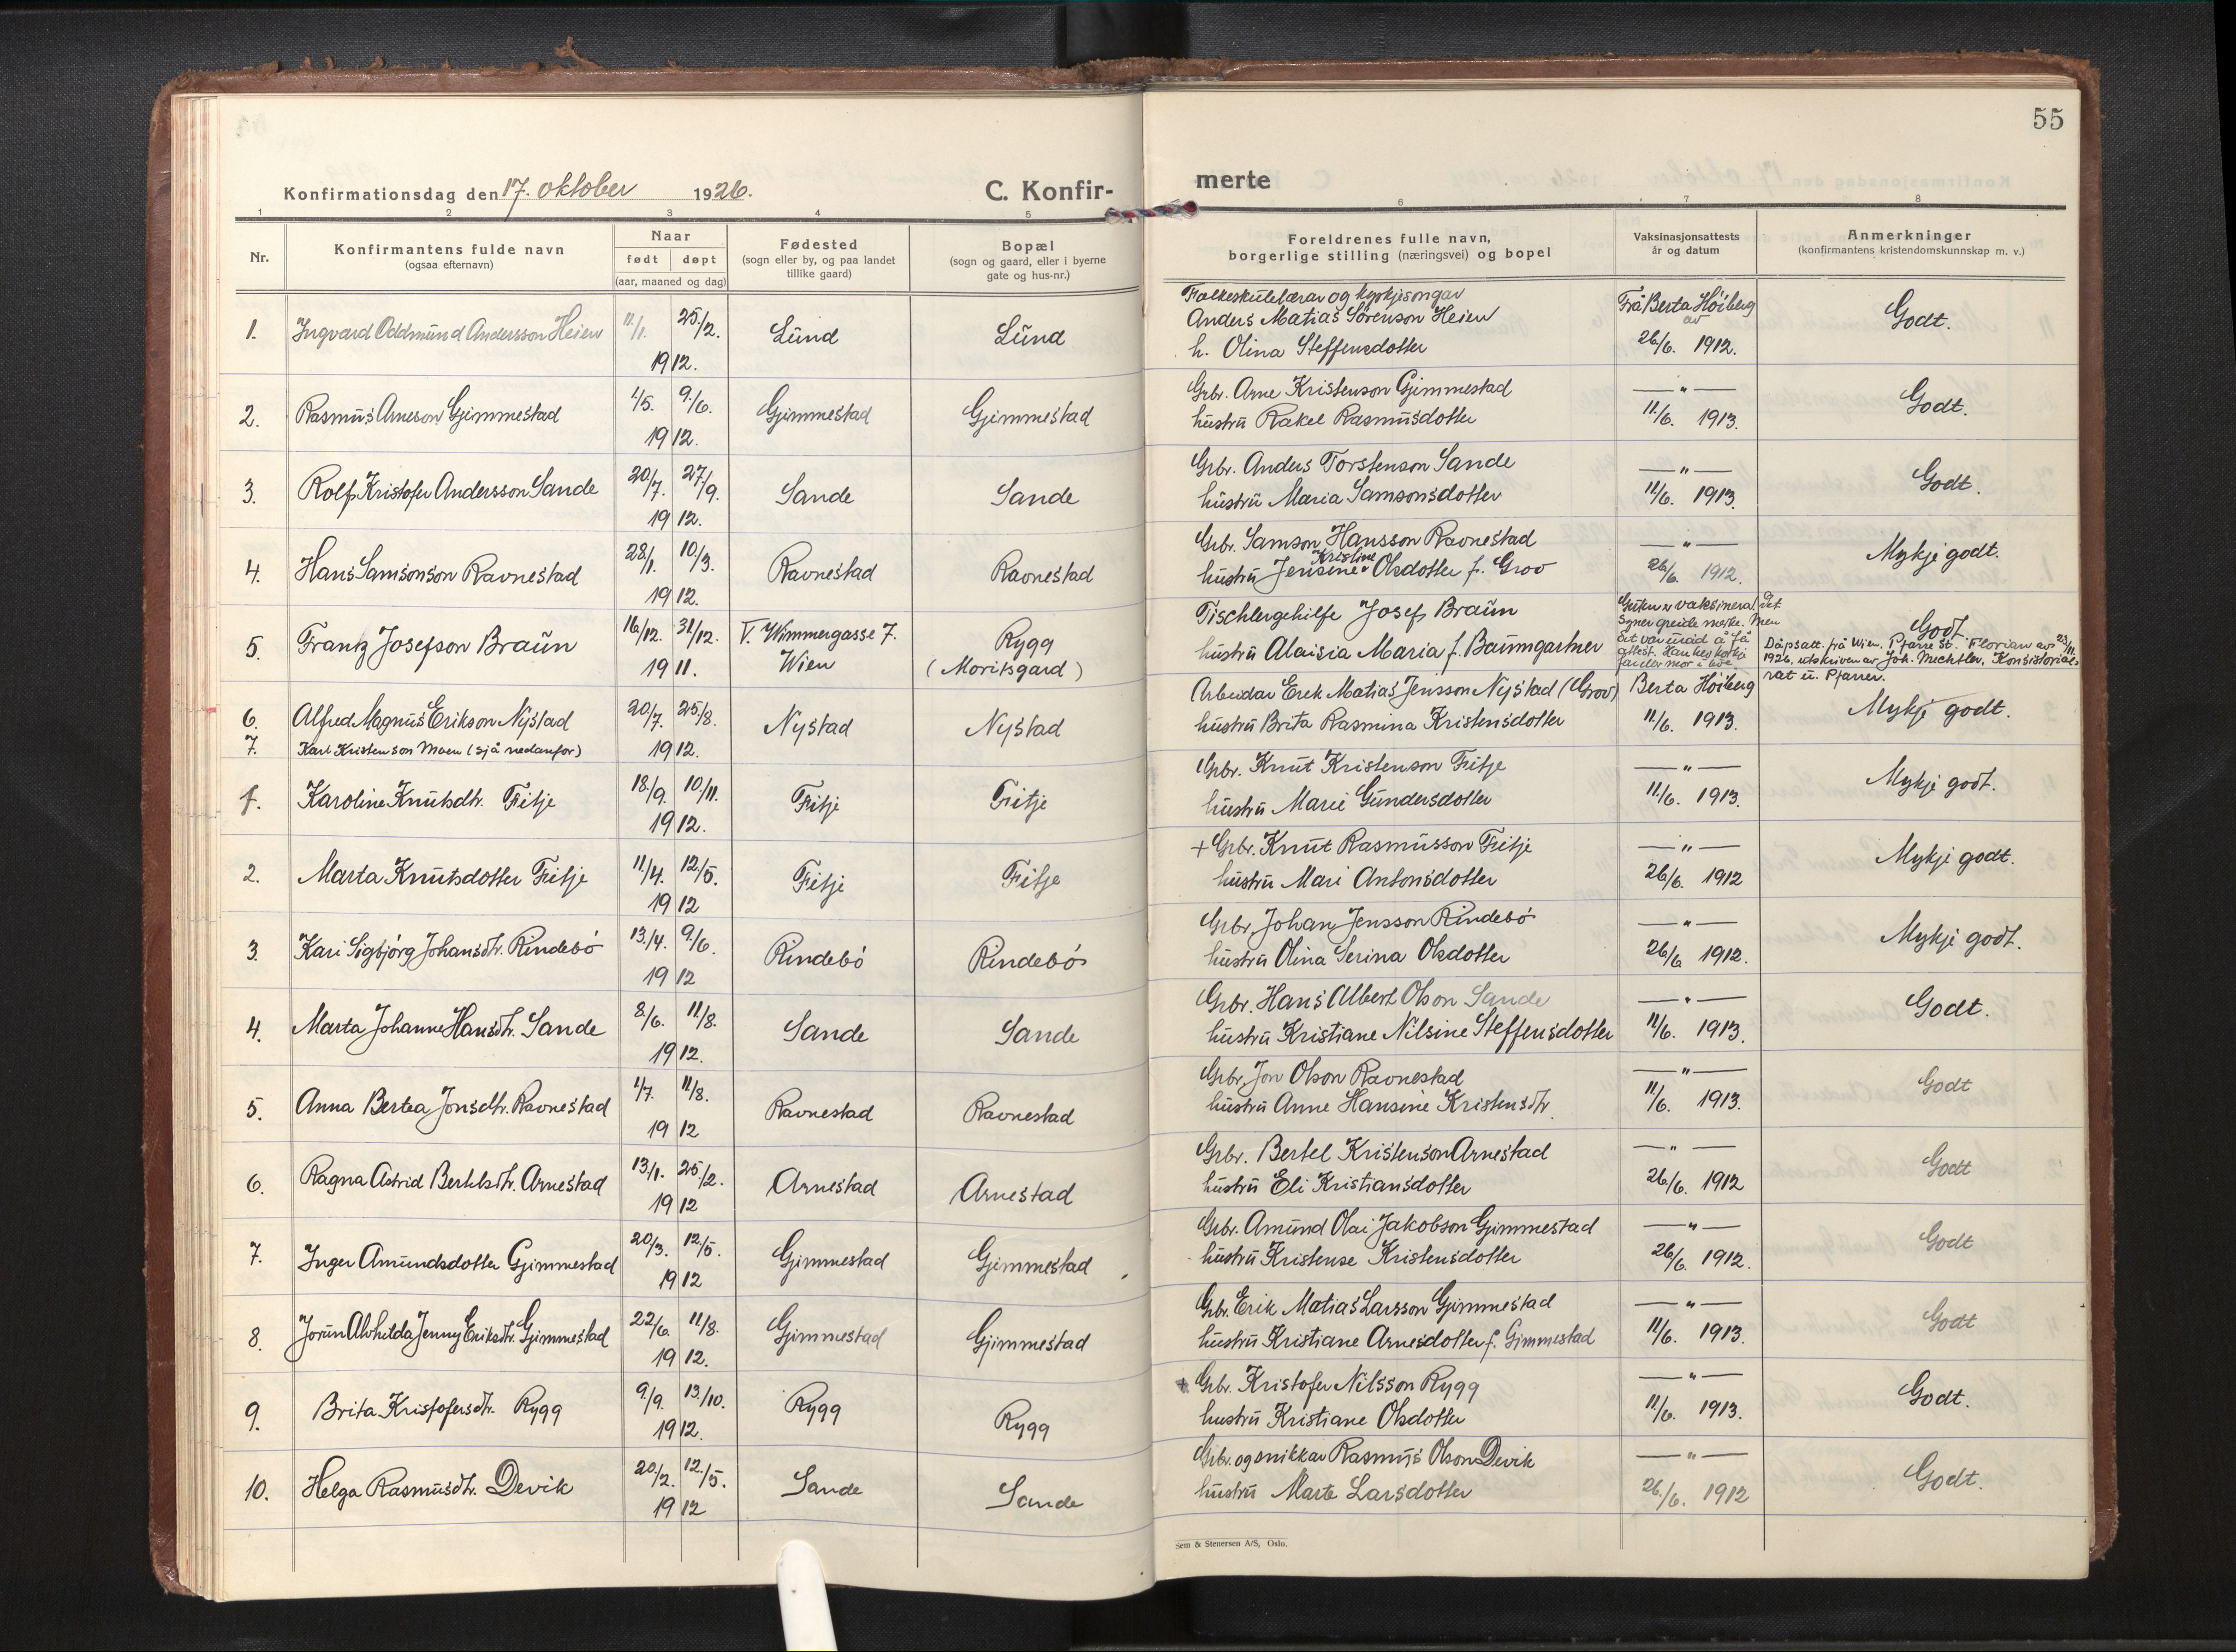 55
Konfirmationsdag den 17. oktober 1926.
C. Konfir-
merte
1 2 3 4 5 6 7 8
Nr.
Konfirmantens fulde navn
(ogsaa efternavn)
Naar
født døpt
(aar, maaned og dag)
Fødested
(sogn eller by, og paa landet
tillike gaard)
Bopæl
(sogn og gaard, eller i byerne
gate og hus-nr.)
Foreldrenes fulle navn,
borgerlige stilling (næringsvei) og bopel
Vaksinasjonsattests
år og datum
Anmerkninger
(konfirmantens kristendomskunnskap m. v.)
1. Ingvard Oddmund Andersson Heien 11/1. 25/2. 1912. Lund Lund
Folkeskulelærar og kyrkjesongar
Anders Matias Sørenson Heien
h. Olina Steffensdotter
Frå Berta Höiberg
av
26/6. 1912.
Godt.
2. Rasmus Arneson Gjimmestad 1/5. 9/6. 1912. Gjimmestad Gjimmestad
Grbr. Arne Kristenson Gjimmestad
hustru Rakel Rasmusdotter
— " —
11/6. 1913.
Godt.
3. Rolf Kristofer Andersson Sande 20/7. 27/9. 1912. Sande Sande
Grbr. Anders Torstenson Sande
hustru Maria Samsonsdotter
— " —
11/6. 1913.
Godt.
4. Hans Samsonson Ravnestad 28/1. 10/3. 1912. Ravnestad Ravnestad
Grbr. Samson Hansson Ravnestad
hustru Jensine Kristine Olsdotter f. Grov
— " —
26/6. 1912.
Mykje godt.
5. Frantz Josefson Braun 16/12. 31/12. 1911. V. Wimmergasse 7. Wien Rygg (Moritsgard)
Tischlergehilfe Josef Braun
hustru Aloisia Maria f. Baumgartner
Guten er vaksinera. Det
syner greide merke. Men
det var uråd å få
attest. Han hev korkje
far eller mor i live.
Godt.
Dåpsatt. frå Wien. Pfarre St. Florian av 23/11.
1926, utskriven av Joh. Mechtler, Konsistorial-
rat u. Pfarrer.
6. Alfred Magnus Erikson Nystad 20/7. 25/8. 1912. Nystad Nystad
Arbeidar Erek Matias Jensson Nystad (Grov)
hustru Brita Rasmina Kristensdotter
Berta Höiberg
11/6. 1913.
Mykje godt.
7. Karl Kristenson Moen (sjå nedanfor)
1. Karoline Knutsdtr. Fitje 18/9. 10/11. 1912. Fitje Fitje
Grbr. Knut Kristenson Fitje
hustru Marie Gundersdotter
— " —
11/6. 1913.
Mykje godt.
2. Marta Knutsdotter Fitje 11/4. 12/5. 1912 Fitje Fitje
+ Grbr. Knut Rasmusson Fitje
hustru Mari Antonsdotter
— " —
26/6. 1912
Mykje godt.
3. Kari Sigbjörg Johansdtr. Rindebö 13/4. 9/6. 1912 Rindebö Rindebö
Grbr. Johan Jensson Rindebö
hustru Olina Serina Olsdotter
— " —
26/6 1912.
Mykje godt.
4. Marta Johanne Hansdtr. Sande 8/6. 11/8. 1912. Sande Sande
Grbr. Hans Albert Olson Sande
hustru Kristiane Nilsine Steffensdotter
— " —
11/6. 1913.
Godt.
5. Anna Bertea Jonsdtr. Ravnestad 1/7. 11/8. 1912 Ravnestad Ravnestad
Grbr. Jon Olson Ravnestad
hustru Anne Hansine Kristensdtr.
— " —
11/6. 1913.
Godt
6. Ragna Astrid Bertelsdtr. Arnestad 13/1. 25/2. 1912 Arnestad Arnestad
Grbr. Bertel Kristenson Arnestad
hustru Eli Kristiansdotter
— " —
26/6. 1912
Godt
7. Inger Amundsdotter Gjimmestad 20/3. 12/5. 1912 Gjimmestad Gjimmestad
Grbr. Amund Olai Jakobson Gjimmestad
hustru Kristense Kristensdotter
— " —
26/6. 1912.
Godt
8. Jorun Alvhilda Jenny Eriksdtr. Gjimmestad 22/6. 11/8. 1912. Gjimmestad Gjimmestad
Grbr. Erik Matias Larsson Gjimmestad
hustru Kristiane Arnesdotter f. Gimmestad
— " —
11/6. 1913.
Godt
9. Brita Kristofersdtr. Rygg 9/9. 13/10. 1912. Rygg Rygg
+ Grbr. Kristofer Nilsson Rygg
hustru Kristiane Olsdotter
— " —
11/6. 1913.
Godt.
10. Helga Rasmusdtr. Devik 20/2. 12/5. 1912 Sande Sande
Grbr. og snikkar Rasmus Olson Devik
hustru Marte Larsdotter
— " —
26/6. 1912
Godt.
Sem & Stenersen A/S, Oslo.